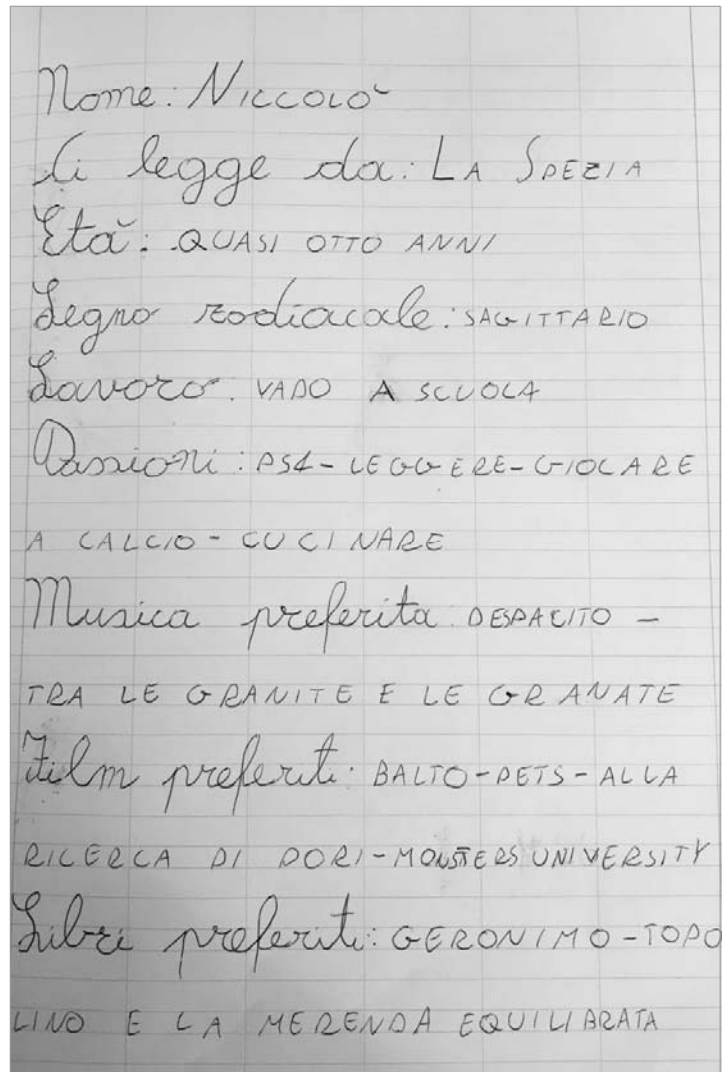 Nome: NICCOLÒ
Ci legge da: LA SPEZIA
Età: QUASI OTTO ANNI
Segno zodiacale: SAGITTARIO
Lavoro: VADO A SCUOLA
Passioni: PS4-LEGGERE-GIOCARE
A CALCIO-CUCINARE
Musica preferita: DESPACITO -
TRA LE GRANITE E LE GRANATE
Film preferiti: BALTO-PETS-ALLA
RICERCA DI DORI-MONSTERS UNIVERSITY
Libri preferiti: GERONIMO-TOPO
LINO E LA MERENDA EQUILIBRATA